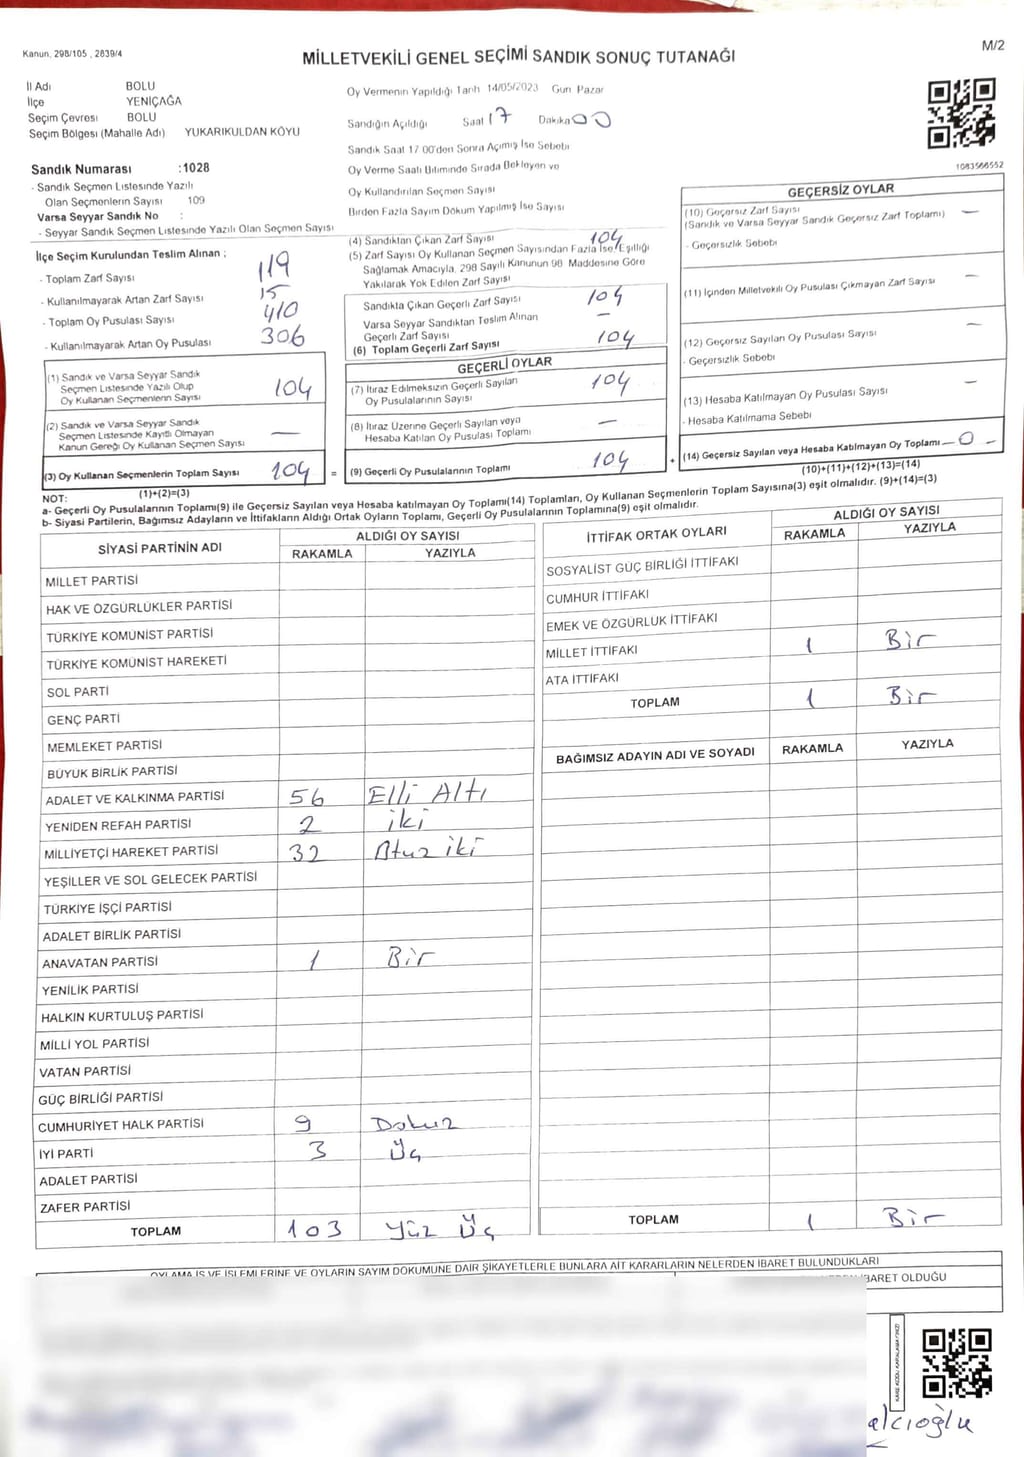 Kanun, 298/105 , 2839/4
MİLLETVEKİLİ GENEL SEÇİMİ SANDIK SONUÇ TUTANAĞI
M/2
İl Adı BOLU
İlçe YENİÇAĞA
Seçim Çevresi BOLU
Seçim Bölgesi (Mahalle Adı) YUKARIKULDAN KÖYÜ
Oy Vermenin Yapıldığı Tarih 14/05/2023 Gün Pazar
Sandığın Açıldığı Saat 17 Dakika 00
Sandık Saat 17 00'den Sonra Açımış İse Sebebi
Oy Verme Saati Bitiminde Sırada Bekleyen ve
Oy Kullandırılan Seçmen Sayısı
Birden Fazla Sayım Döküm Yapılmış İse Sayısı
1083566552
Sandık Numarası :1028
- Sandık Seçmen Listesinde Yazılı
Olan Seçmenlerin Sayısı 109
Varsa Seyyar Sandık No :
- Seyyar Sandık Seçmen Listesinde Yazılı Olan Seçmen Sayısı
İlçe Seçim Kurulundan Teslim Alınan :
- Toplam Zarf Sayısı 119
- Kullanılmayarak Artan Zarf Sayısı 15
- Toplam Oy Pusulası Sayısı 410
- Kullanılmayarak Artan Oy Pusulası 306
(1) Sandık ve Varsa Seyyar Sandık
Seçmen Listesinde Yazılı Olup
Oy Kullanan Seçmenlerin Sayısı 104
(2) Sandık ve Varsa Seyyar Sandık
Seçmen Listesinde Kayıtlı Olmayan
Kanun Gereği Oy Kullanan Seçmen Sayısı —
(3) Oy Kullanan Seçmenlerin Toplam Sayısı 104 =
(1)+(2)=(3)
(4) Sandıktan Çıkan Zarf Sayısı 104
(5) Zarf Sayısı Oy Kullanan Seçmen Sayısından Fazla İse Eşitliği
Sağlamak Amacıyla, 298 Sayılı Kanunun 98 Maddesine Göre
Yakılarak Yok Edilen Zarf Sayısı
Sandıkta Çıkan Geçerli Zarf Sayısı 104
Varsa Seyyar Sandıktan Teslim Alınan
Geçerli Zarf Sayısı —
(6) Toplam Geçerli Zarf Sayısı 104
GEÇERLİ OYLAR
(7) İtiraz Edilmeksizin Geçerli Sayılan
Oy Pusulalarının Sayısı 104
(8) İtiraz Üzerine Geçerli Sayılan veya
Hesaba Katılan Oy Pusulası Toplamı —
(9) Geçerli Oy Pusulalarının Toplamı 104 +
GEÇERSİZ OYLAR
(10) Geçersiz Zarf Sayısı
(Sandık ve Varsa Seyyar Sandık Geçersiz Zarf Toplamı) —
- Geçersizlik Sebebi
(11) İçinden Milletvekili Oy Pusulası Çıkmayan Zarf Sayısı —
(12) Geçersiz Sayılan Oy Pusulası Sayısı —
- Geçersizlik Sebebi
(13) Hesaba Katılmayan Oy Pusulası Sayısı —
- Hesaba Katılmama Sebebi
(14) Geçersiz Sayılan veya Hesaba Katılmayan Oy Toplamı — 0 —
(10)+(11)+(12)+(13)=(14)
NOT:
a- Geçerli Oy Pusulalarının Toplamı(9) ile Geçersiz Sayılan veya Hesaba katılmayan Oy Toplamı(14) Toplamları, Oy Kullanan Seçmenlerin Toplam Sayısına(3) eşit olmalıdır. (9)+(14)=(3)
b- Siyasi Partilerin, Bağımsız Adayların ve İttifakların Aldığı Ortak Oyların Toplamı, Geçerli Oy Pusulalarının Toplamına(9) eşit olmalıdır.
SİYASİ PARTİNİN ADI
ALDIĞI OY SAYISI
RAKAMLA YAZIYLA
MİLLET PARTİSİ
HAK VE ÖZGÜRLÜKLER PARTİSİ
TÜRKİYE KOMÜNİST PARTİSİ
TÜRKİYE KOMÜNİST HAREKETİ
SOL PARTİ
GENÇ PARTİ
MEMLEKET PARTİSİ
BÜYÜK BİRLİK PARTİSİ
ADALET VE KALKINMA PARTİSİ 56 Elli Altı
YENİDEN REFAH PARTİSİ 2 iki
MİLLİYETÇİ HAREKET PARTİSİ 32 Otuz iki
YEŞİLLER VE SOL GELECEK PARTİSİ
TÜRKİYE İŞÇİ PARTİSİ
ADALET BİRLİK PARTİSİ
ANAVATAN PARTİSİ 1 Bir
YENİLİK PARTİSİ
HALKIN KURTULUŞ PARTİSİ
MİLLİ YOL PARTİSİ
VATAN PARTİSİ
GÜÇ BİRLİĞİ PARTİSİ
CUMHURİYET HALK PARTİSİ 9 Dokuz
İYİ PARTİ 3 Üç
ADALET PARTİSİ
ZAFER PARTİSİ
TOPLAM 103 Yüz Üç
İTTİFAK ORTAK OYLARI
ALDIĞI OY SAYISI
RAKAMLA YAZIYLA
SOSYALİST GÜÇ BİRLİĞİ İTTİFAKI
CUMHUR İTTİFAKI
EMEK VE ÖZGÜRLÜK İTTİFAKI
MİLLET İTTİFAKI 1 Bir
ATA İTTİFAKI
TOPLAM 1 Bir
BAĞIMSIZ ADAYIN ADI VE SOYADI RAKAMLA YAZIYLA
TOPLAM 1 Bir
OYLAMA İŞ VE İŞLEMLERİNE VE OYLARIN SAYIM DÖKÜMÜNE DAİR ŞİKAYETLERLE BUNLARA AİT KARARLARIN NELERDEN İBARET BULUNDUKLARI
İBARET OLDUĞU
alcıoğlu